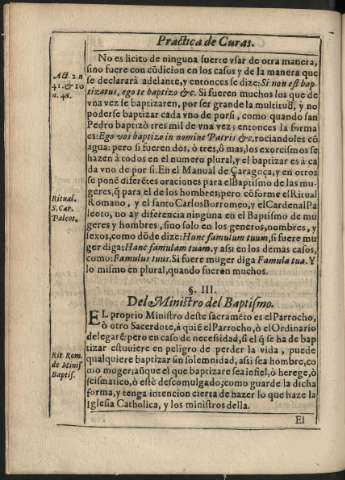 Practica de Curas.
No es licito de ninguna suerte vsar de otra manera,
sino fuere con cōdicion en los casos y de la manera que
se declararà adelante, y entonces se dize: Si non est bap
tizatus, ego te baptizo &c. Si fueren muchos los que de
vna vez se baptizaren, por ser grande la multitud, y no
poderse baptizar cada vno de por si, como quando san
Pedro baptizò tres mil de vna vez; entonces la forma
es: Ego vos baptizo in nomine Patris &c. rociandoles cō
agua: pero si fueren dos, ò tres, ò mas, los exorcismos se
hazen à todos en el numero plural, y el baptizar es à ca
da vno de por si. En el Manual de Çaragoça, y en otros
se ponē diferētes oraciones para el Baptismo de las mu
geres, q̄ para el de los hombres; pero cōforme el Ritual
Romano, y el santo Carlos Borromeo, y el Cardenal Pa
leoto, no ay diferencia ninguna en el Baptismo de mu
geres y hombres, sino solo en los generos, nombres, y
sexos, como dōde dize: Hunc famulum tuum, si fuere mu
ger diga: Hanc famulam tuam, y assi en los demàs casos,
como: Famulus tuus. Si fuere muger diga Famula tua. Y
lo mismo en plural, quando fueren muchos.
Act 2. n
41. & 10
n. 48.
Ritual.
S. Car.
Paleot.
§. III.
Del Ministro del Baptismo.
EL proprio Ministro deste sacramēto es el Parrocho,
ò otro Sacerdote, à quiē el Parrocho, ò el Ordinario
delegarē; pero en caso de necessidad, si el q̄ se ha de bap
tizar estuuiere en peligro de perder la vida, puede
qualquiere baptizar sin solemnidad, assi sea hombre, co
mo muger: aūque el que baptizare sea infiel, ò herege, ò
scismatico, ò estè descomulgado, como guarde la dicha
forma, y tenga intencion cierta de hazer lo que haze la
Iglesia Catholica, y los ministros della.
Rit Rom.
de Minis
Baptis.
El